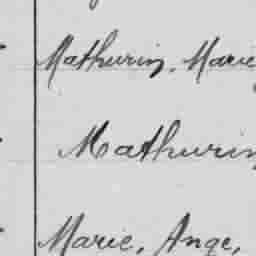 Mathurin, Marie
Mathurin
Marie, Ange,